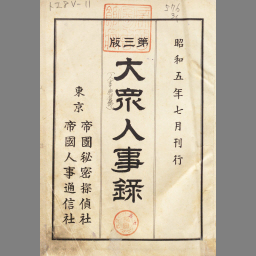 昭和五年七月刊行
第三版
大眾人事錄
東京
帝國秘密探偵社
帝國人事通信社